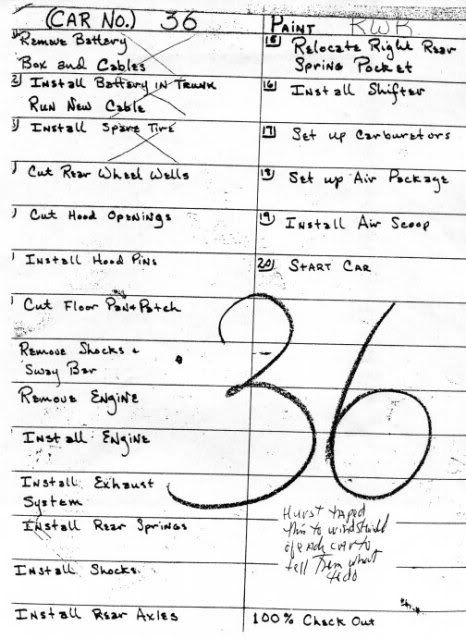 (CAR NO.) 36
1) Remove Battery
Box and Cables
2) Install Battery in Trunk
Run New Cable
3) Install Spare Tire
) Cut Rear Wheel Wells
) Cut Hood Openings
) Install Hood Pins
) Cut Floor Pan & Patch
Remove Shocks &
Sway Bar
Remove Engine
Install Engine
Install Exhaust
System
Install Rear Springs
Install Shocks
Install Rear Axles
Paint RWR
15) Relocate Right Rear
Spring Pocket
16) Install Shifter
17) Set up Carburetors
18) Set up Air Package
19) Install Air Scoop
20) START CAR
36
Hurst taped
this to windshield
of each car to
tell them what
to do
100% Check Out